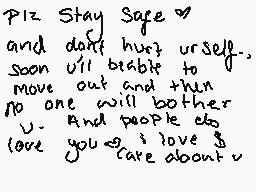 Plz Stay Safe ♥
and don't hurt urself..,
soon u'll beable to
move out and then
no one will bother
u. And people do
love you ♥ i love &
care about u